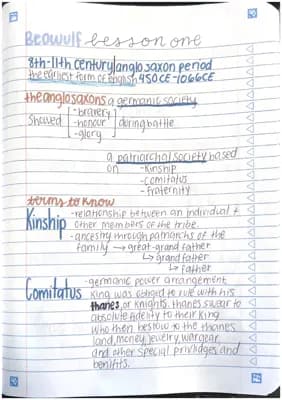 Beowulf lesson one
8th-11th century/anglo saxon period
the earliest form of english 450CE-1066CE
the anglo saxons a germanic society
showed - bravery
- honour during battle
- glory
a patriarchal society based
on - Kinship
- Comitatus
- fraternity
terms to know
Kinship - relationship between an individual &
other members of the tribe.
- ancestry through patriarchs of the
family → great-grand father
↳ grand father
↳ father
Comitatus - germanic power arrangement
King was obliged to rule with his
thanes, or knights. thanes swear to
absolute fidelity to their King
who then bestow to the thanes
land, money, jewelry, war gear,
and other special priviledges and
benifits.